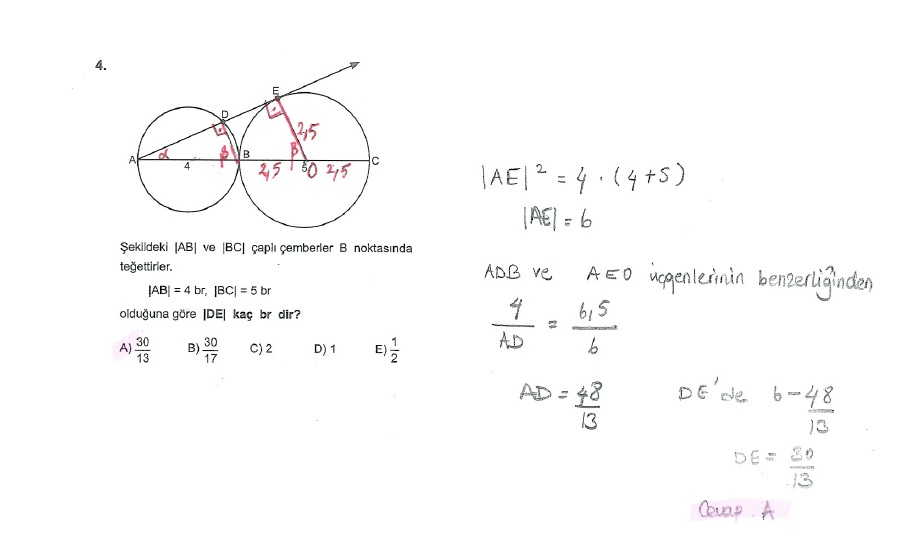 4.
E
D
2,5
A α β B β C
4 2,5 5 O 2,5
Şekildeki |AB| ve |BC| çaplı çemberler B noktasında
teğettirler.
|AB| = 4 br, |BC| = 5 br
olduğuna göre |DE| kaç br dir?
A) 30/13 B) 30/17 C) 2 D) 1 E) 1/2
|AE|² = 4 . (4+5)
|AE| = 6
ADB ve AEO üçgenlerinin benzerliğinden
4/AD = 6,5/6
AD = 48/13 DE'de 6 - 48/13
DE = 30/13
Cevap : A